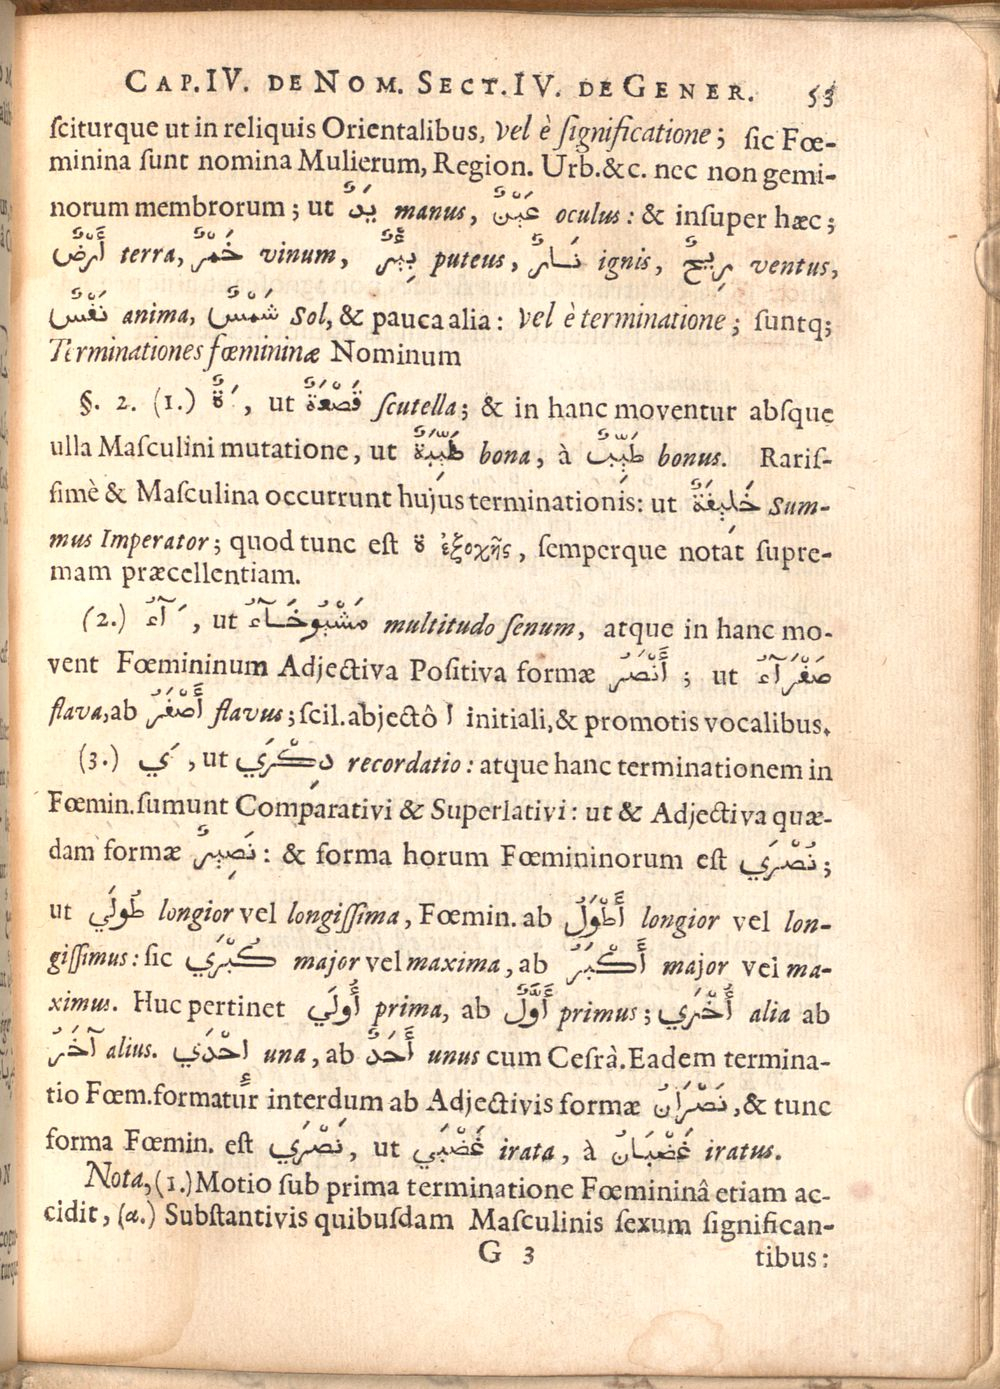 CAP.IV. DE NOM. SECT.IV. DE GENER. 53
ſciturque ut in reliquis Orientalibus, vel è ſignificatione; ſic Fœ-
minina ſunt nomina Mulierum, Region. Urb.&c. nec non gemi-
norum membrorum; ut يَدٌ manus, عَيْنٌ oculus: & inſuper hæc;
أَرْضٌ terra, خَمْرٌ vinum, بِئْرٌ puteus, نَارٌ ignis, رِيحٌ ventus,
نَفْسٌ anima, شَمْسٌ Sol, & pauca alia: vel è terminatione; ſuntq;
Terminationes fœmininæ Nominum
§. 2. (1.) َ ةٌ, ut قَصْعَةٌ ſcutella; & in hanc moventur abſque
ulla Maſculini mutatione, ut طَيِّبَةٌ bona, à طَيِّبٌ bonus. Rariſ-
ſimè & Maſculina occurrunt hujus terminationis: ut خَلِيفَةٌ Sum-
mus Imperator; quod tunc eſt ἐξοχῆς, ſemperque notat ſupre-
mam præcellentiam.
(2.) َ آءُ, ut مَشْيُوخَآءُ multitudo ſenum, atque in hanc mo-
vent Fœmininum Adjectiva Poſitiva formæ أَنْصَرُ; ut صَفْرَآءُ
flava, ab أَصْفَرُ flavus; ſcil. abjectô ا initiali, & promotis vocalibus.
(3.) َ ي, ut ذِكْرَي recordatio: atque hanc terminationem in
Fœmin. ſumunt Comparativi & Superlativi: ut & Adjectiva quæ-
dam formæ نَصِيرٌ: & forma horum Fœmininorum eſt نُصْرَي;
ut طُولَي longior vel longiſſima, Fœmin. ab أَطْوَلُ longior vel lon-
giſſimus: ſic كُبْرَي major vel maxima, ab أَكْبَرُ major vel ma-
ximus. Huc pertinet أُولَي prima, ab أَوَّلُ primus; أُخْرَي alia ab
آخَرُ alius. إِحْدَي una, ab أَحَدٌ unus cum Ceſrà. Eadem termina-
tio Fœm. formatur interdum ab Adjectivis formæ نَصْرَانُ, & tunc
forma Fœmin. eſt نَصْرَي, ut غَضْبَي irata, à غَضْبَانُ iratus.
Nota, (1.) Motio ſub prima terminatione Fœmininâ etiam ac-
cidit, (α.) Subſtantivis quibuſdam Maſculinis ſexum ſignifican-
G 3 tibus: